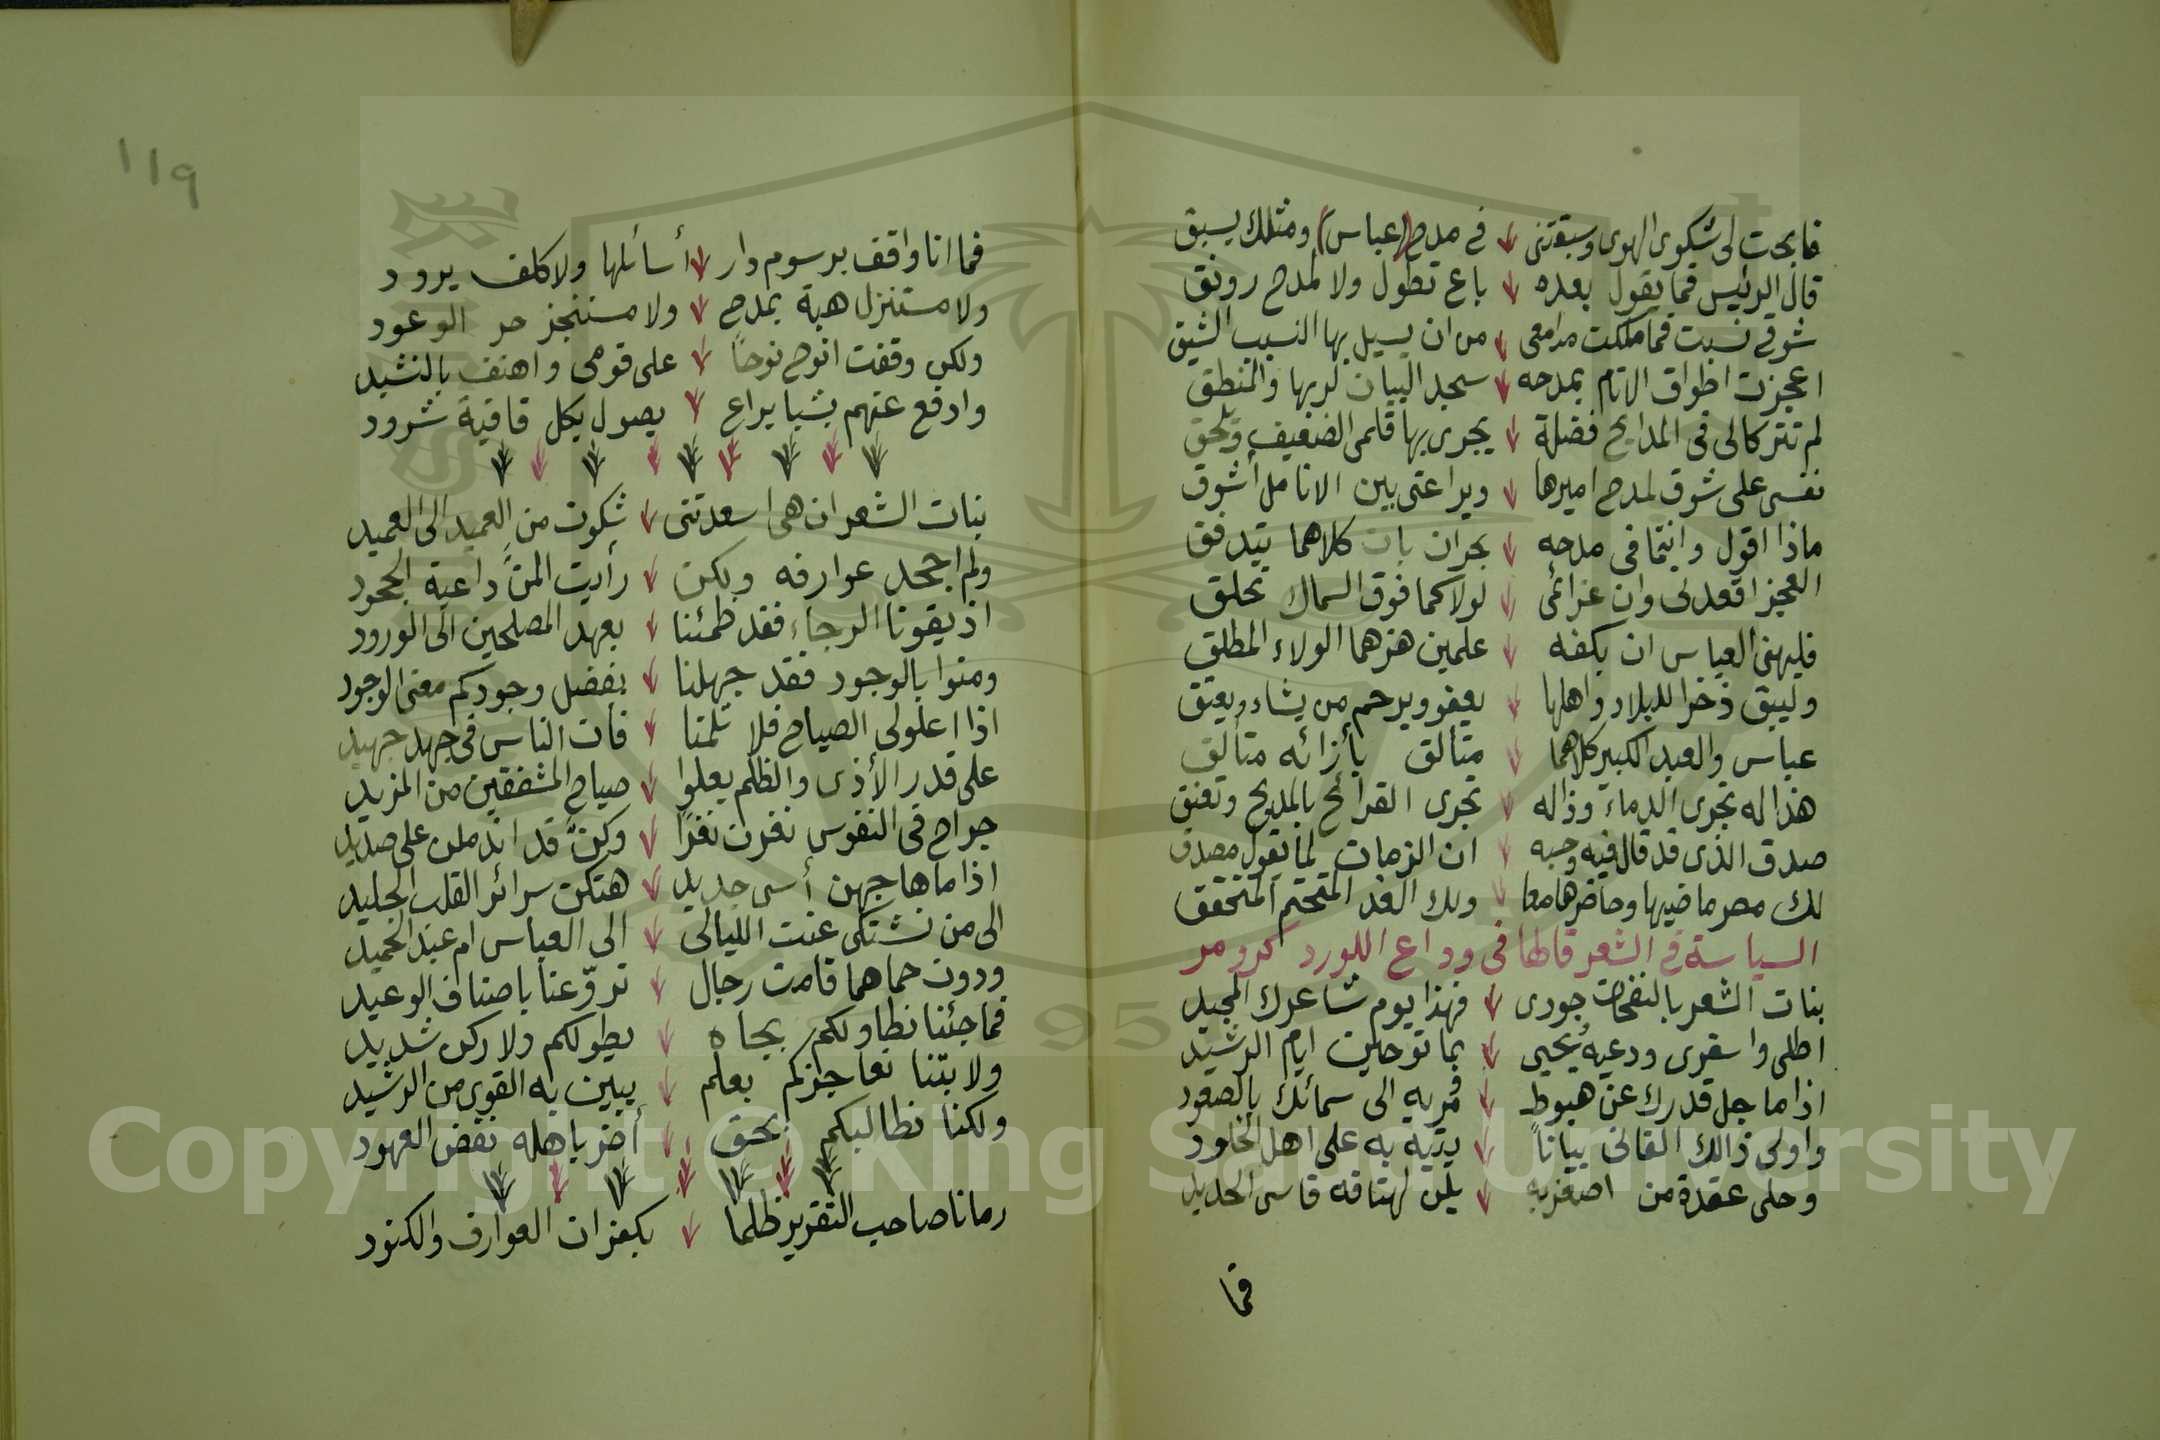 فابحت لى شكوى الهوى وسبقتنى في مدح (عباس) ومثلك يسبق
قال الرئيس فما يقول بعده باع تطول ولا لمدح رونق
شوقي نسبت فما ملكت مدامعى من ان يسيل بها النسيب الشيق
اعجزت اطواق الانام بمدحه سجد البيان لربها والمنطق
لم تترك لى فى المدايح فضلة يجرى بها قلمى الضعيف ويلحق
نفسى على شوق لمدح اميرها ويراعتى بين الانامل أشوق
ماذا اقول وانتما فى مدحه بحران بات كلاهما يتدفق
العجز اقعدنى وان عزائمى لولاكما فوق السماك تحلق
فليهنئ العباس ان بكفه علمين هزهما الولاء المطلق
وليبق ذخرا للبلاد واهلها يعفو ويرحم من يشاء ويعتق
عباس والعيد الكبير كلاهما متألق بأزائه متألق
هذا له تجرى الدماء وذا له تجرى القرائح بالمديح وتغنق
صدق الذى قد قال فيه وحسبه ان الزمان لما يقول مصدق
لك مصر ماضيها وحاضرها معا ولك الغد المتحتم المتحقق
السياسة في الشعر قالها فى وداع اللورد كرومر
بنات الشعر بالنفحات جودى فهذا يوم شاعرك المجيد
اطلى واسفرى ودعيه يُحيى بما توحين ايام الرشيد
اذا ما جل قدرك عن هبوط فمريه الى سمائك بالصعود
واولى ذالك الفانى بياناً يتيه به على اهل الخلود
وحلى عقدة من اصغريه يلن لهتافه قاسى الحديد
فما
١١٩
فما انا واقف برسوم دار أسائلها ولا كلف برود
ولا مستنزل هبة بمدح ولا مستنجز حر الوعود
ولكن وقفت انوح نوحاً على قومى واهتف بالنشيد
وادفع عنهم بشبا يراع يصول بكل قافية شرود
بنات الشعر ان هى اسعدتنى شكوت من العميد الى العميد
ولم اجحد عوارفه ولكن رأيت المنّ داعية الجحود
اذيقونا الرجاء فقد ظمئنا بعهد المصلحين الى الورود
ومنوا بالوجود فقد جهلنا بفضل وجودكم معنى الوجود
اذا اعلولى الصياح فلا تلمنا فان الناس فى جهد جهيد
على قدر الأذى والظلم يعلوا صياح المشفقين من المزيد
جراح فى النفوس نفرن نفرًا وكنّ قد اندملن على صديد
اذا ما هاجهن أسى جديد هتكن سرائر القلب الجليد
الى من نشتكى عنت الليالى الى العباس ام عبد الحميد
ودون حماهما قامت رجال تروّعنا باصناف الوعيد
فما جئنا نطاولكم بجاه يطولكم ولا ركن شديد
ولا بتنا نعاجزكم بعلم يبين به القوى من الرشيد
ولكنا نطالبكم بحق أضر باهله نقض العهود
رمانا صاحب التقرير ظلما بكفران العوارف والكنود